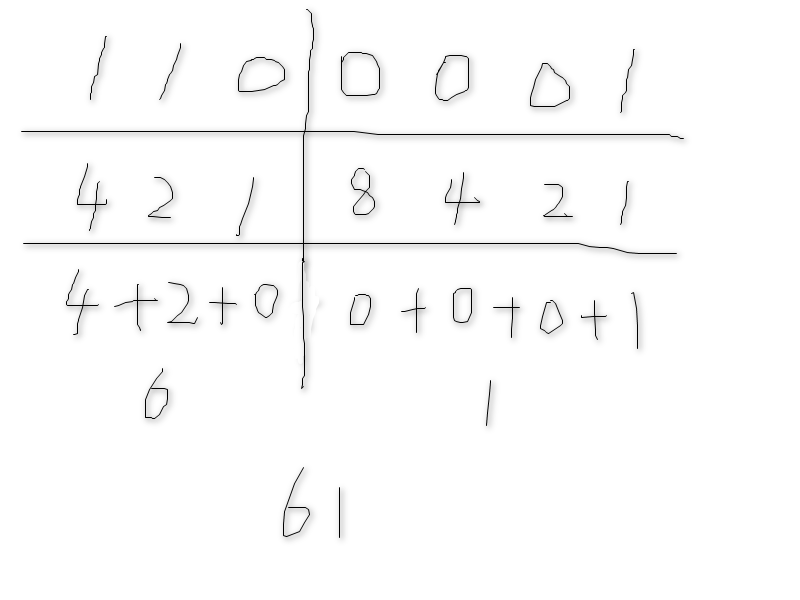 1 1 0 0 0 0 1
4 2 1 8 4 2 1
4+2+0 0+0+0+1
6 1
61